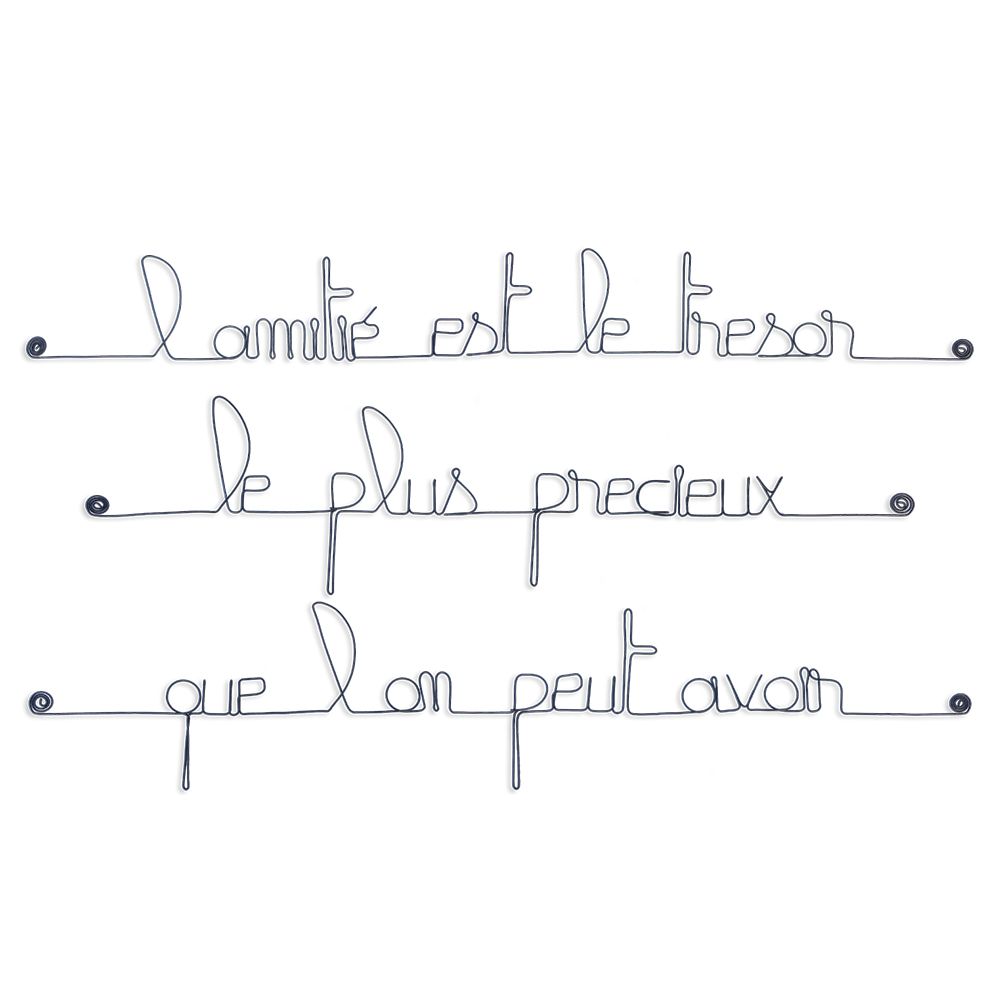 l amitié est le tresor
le plus precieux
que l on peut avoir